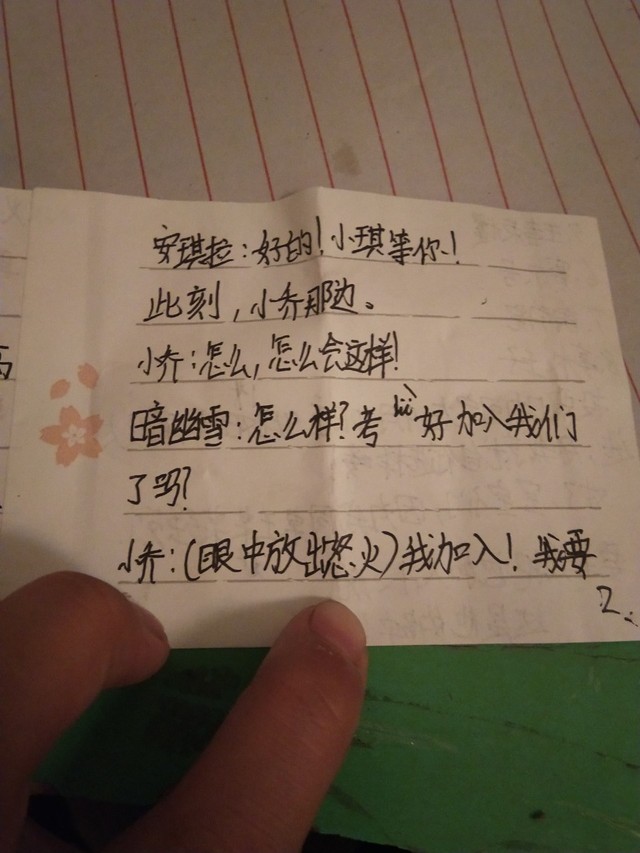 安琪拉:好的!小琪等你!
此刻,小乔那边。
小乔:怎么,怎么会这样!
暗幽雪:怎么样?考lǜ好加入我们
了吗?
小乔:(眼中放出怒火)我加入!我要
2.